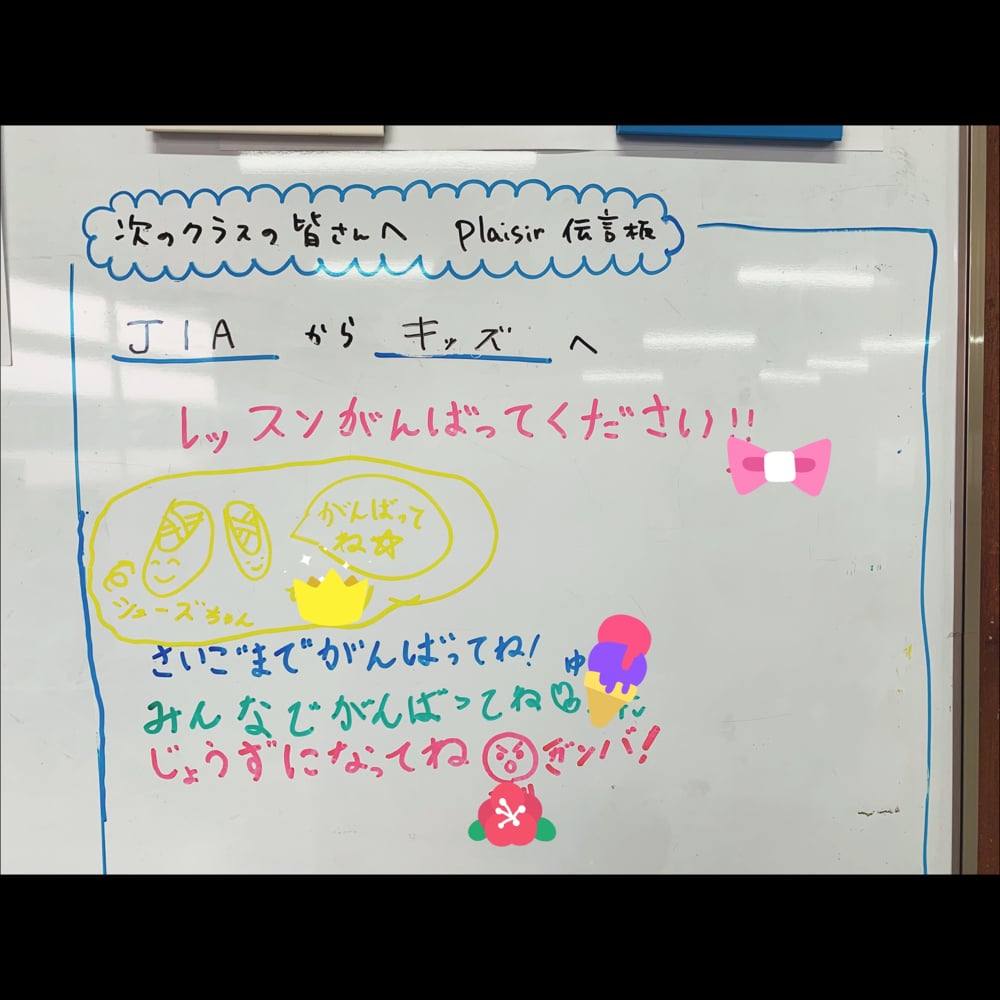 次のクラスの皆さんへ Plaisir 伝言板
JIA から キッズ へ
レッスンがんばってください!!
がんばって
ね☆
シューズちゃん
さいごまでがんばってね! ゆ
みんなでがんばってね♡
じょうずになってね ガンバ!